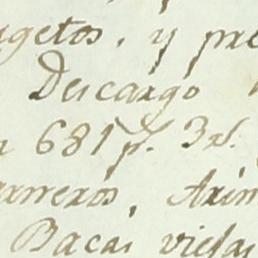 getos, y pre
Descargo
681 p.s 3 rl.
arreros, Axim
Bacas viejas